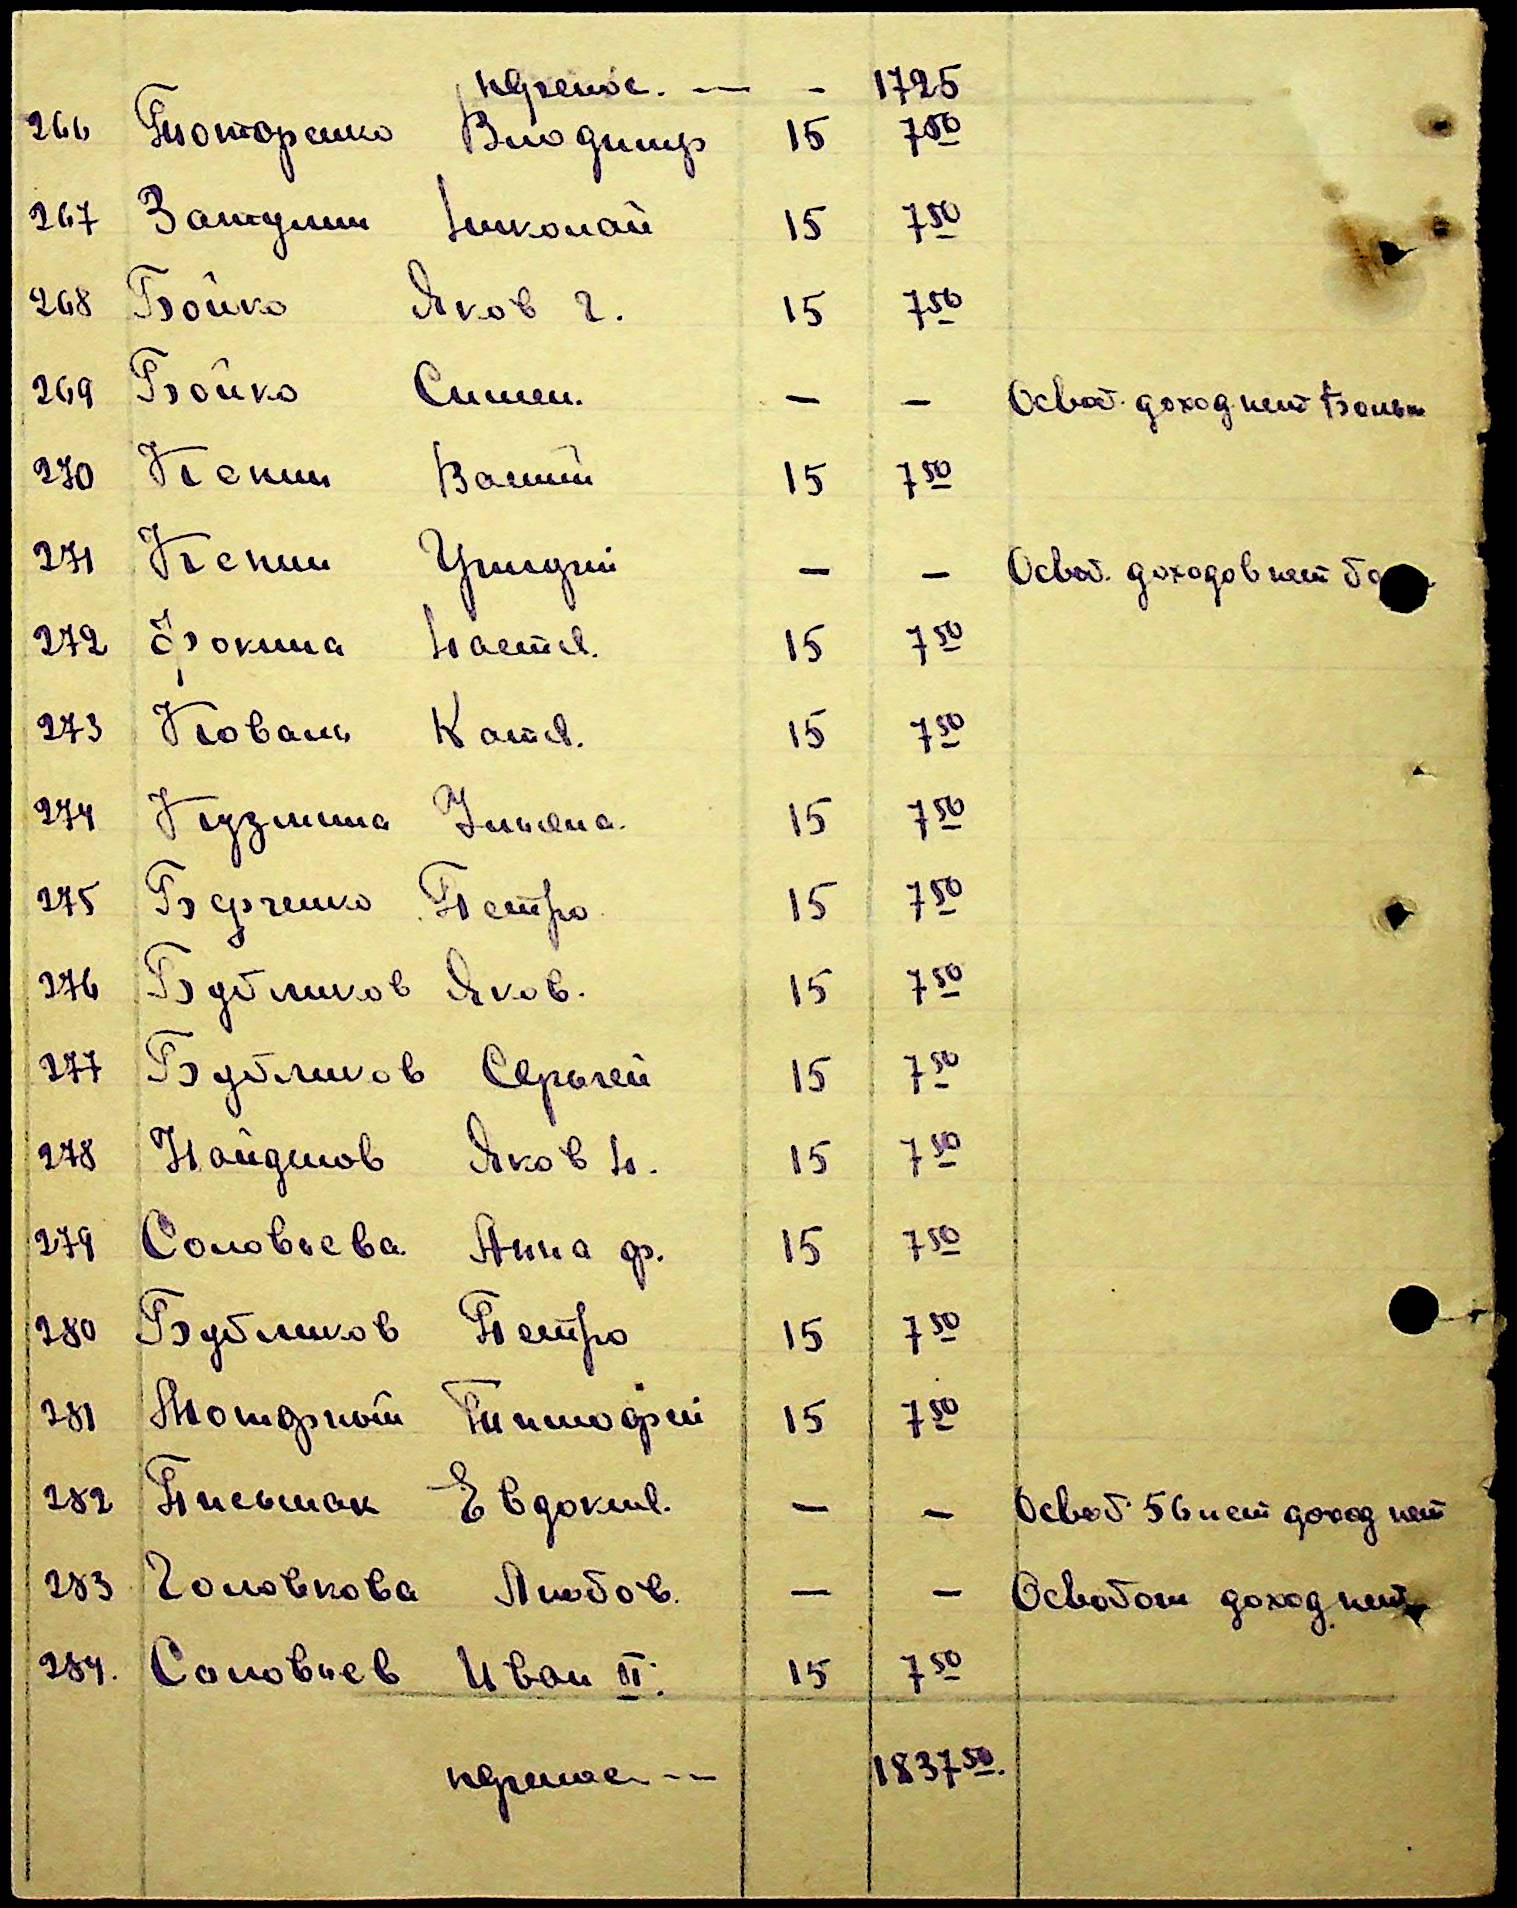 перенос. — - 1725
266 Титоренко Владимир 15 7 50
267 Затулин Николай 15 7 50
268 Бойко Яков Г. 15 7 50
269 Бойко Симен. — — Освоб. доход нет Больн
270 Кекин Василий 15 7 50
271 Кекин — — Освоб. доходов нет бо
272 Фокина Настя. 15 7 50
273 Коваль Катя. 15 7 50
274 Кузмина Ульяна. 15 7 50
275 Берченко Петро 15 7 50
276 Бубликов Яков. 15 7 50
277 Бубликов Серьгей 15 7 50
278 Найдинов Яков Н. 15 7 50
279 Соловьева Анна Ф. 15 7 50
280 Бубликов Петро 15 7 50
281 Тимофей 15 7 50
282 Письмак Евдокия. — — Освоб. 56 лет доход нет
283 Головкова Любов. — — Освобож доход нет
284. Соловьев Иван II. 15 7 50
перенос — — 1837 50.